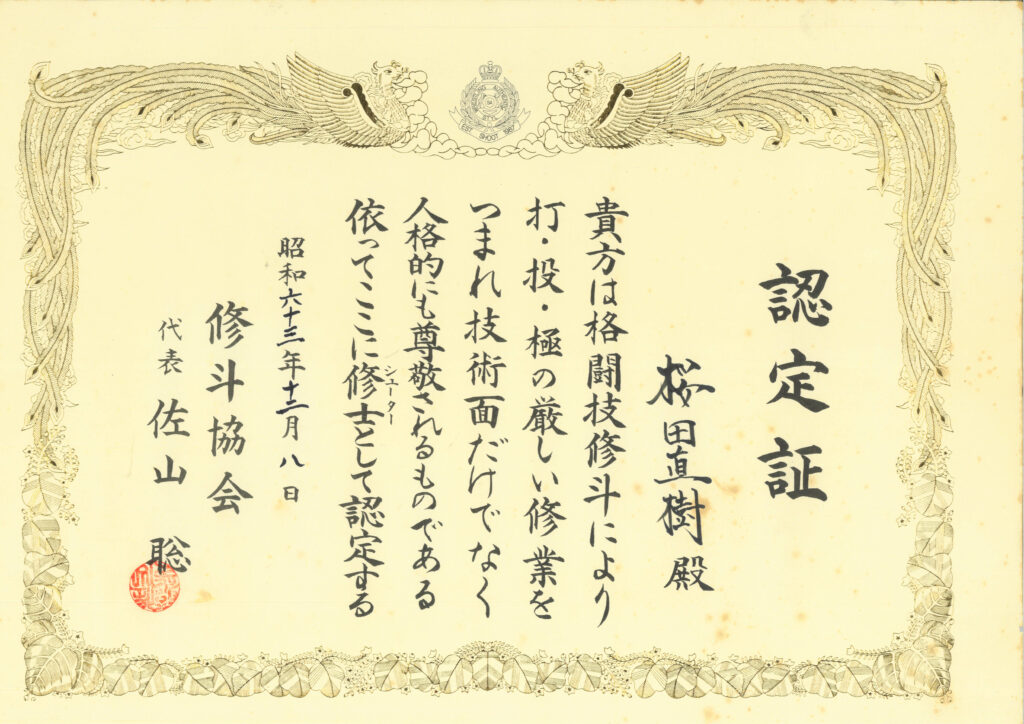 認定証
桜田直樹 殿
貴方は格闘技修斗により
打・投・極の厳しい修業を
つまれ技術面だけでなく
人格的にも尊敬されるものである
シューター
依ってここに修士として認定する
昭和六十三年十二月八日
修斗協会
代表 佐山 聡
EST SHOOT 1987